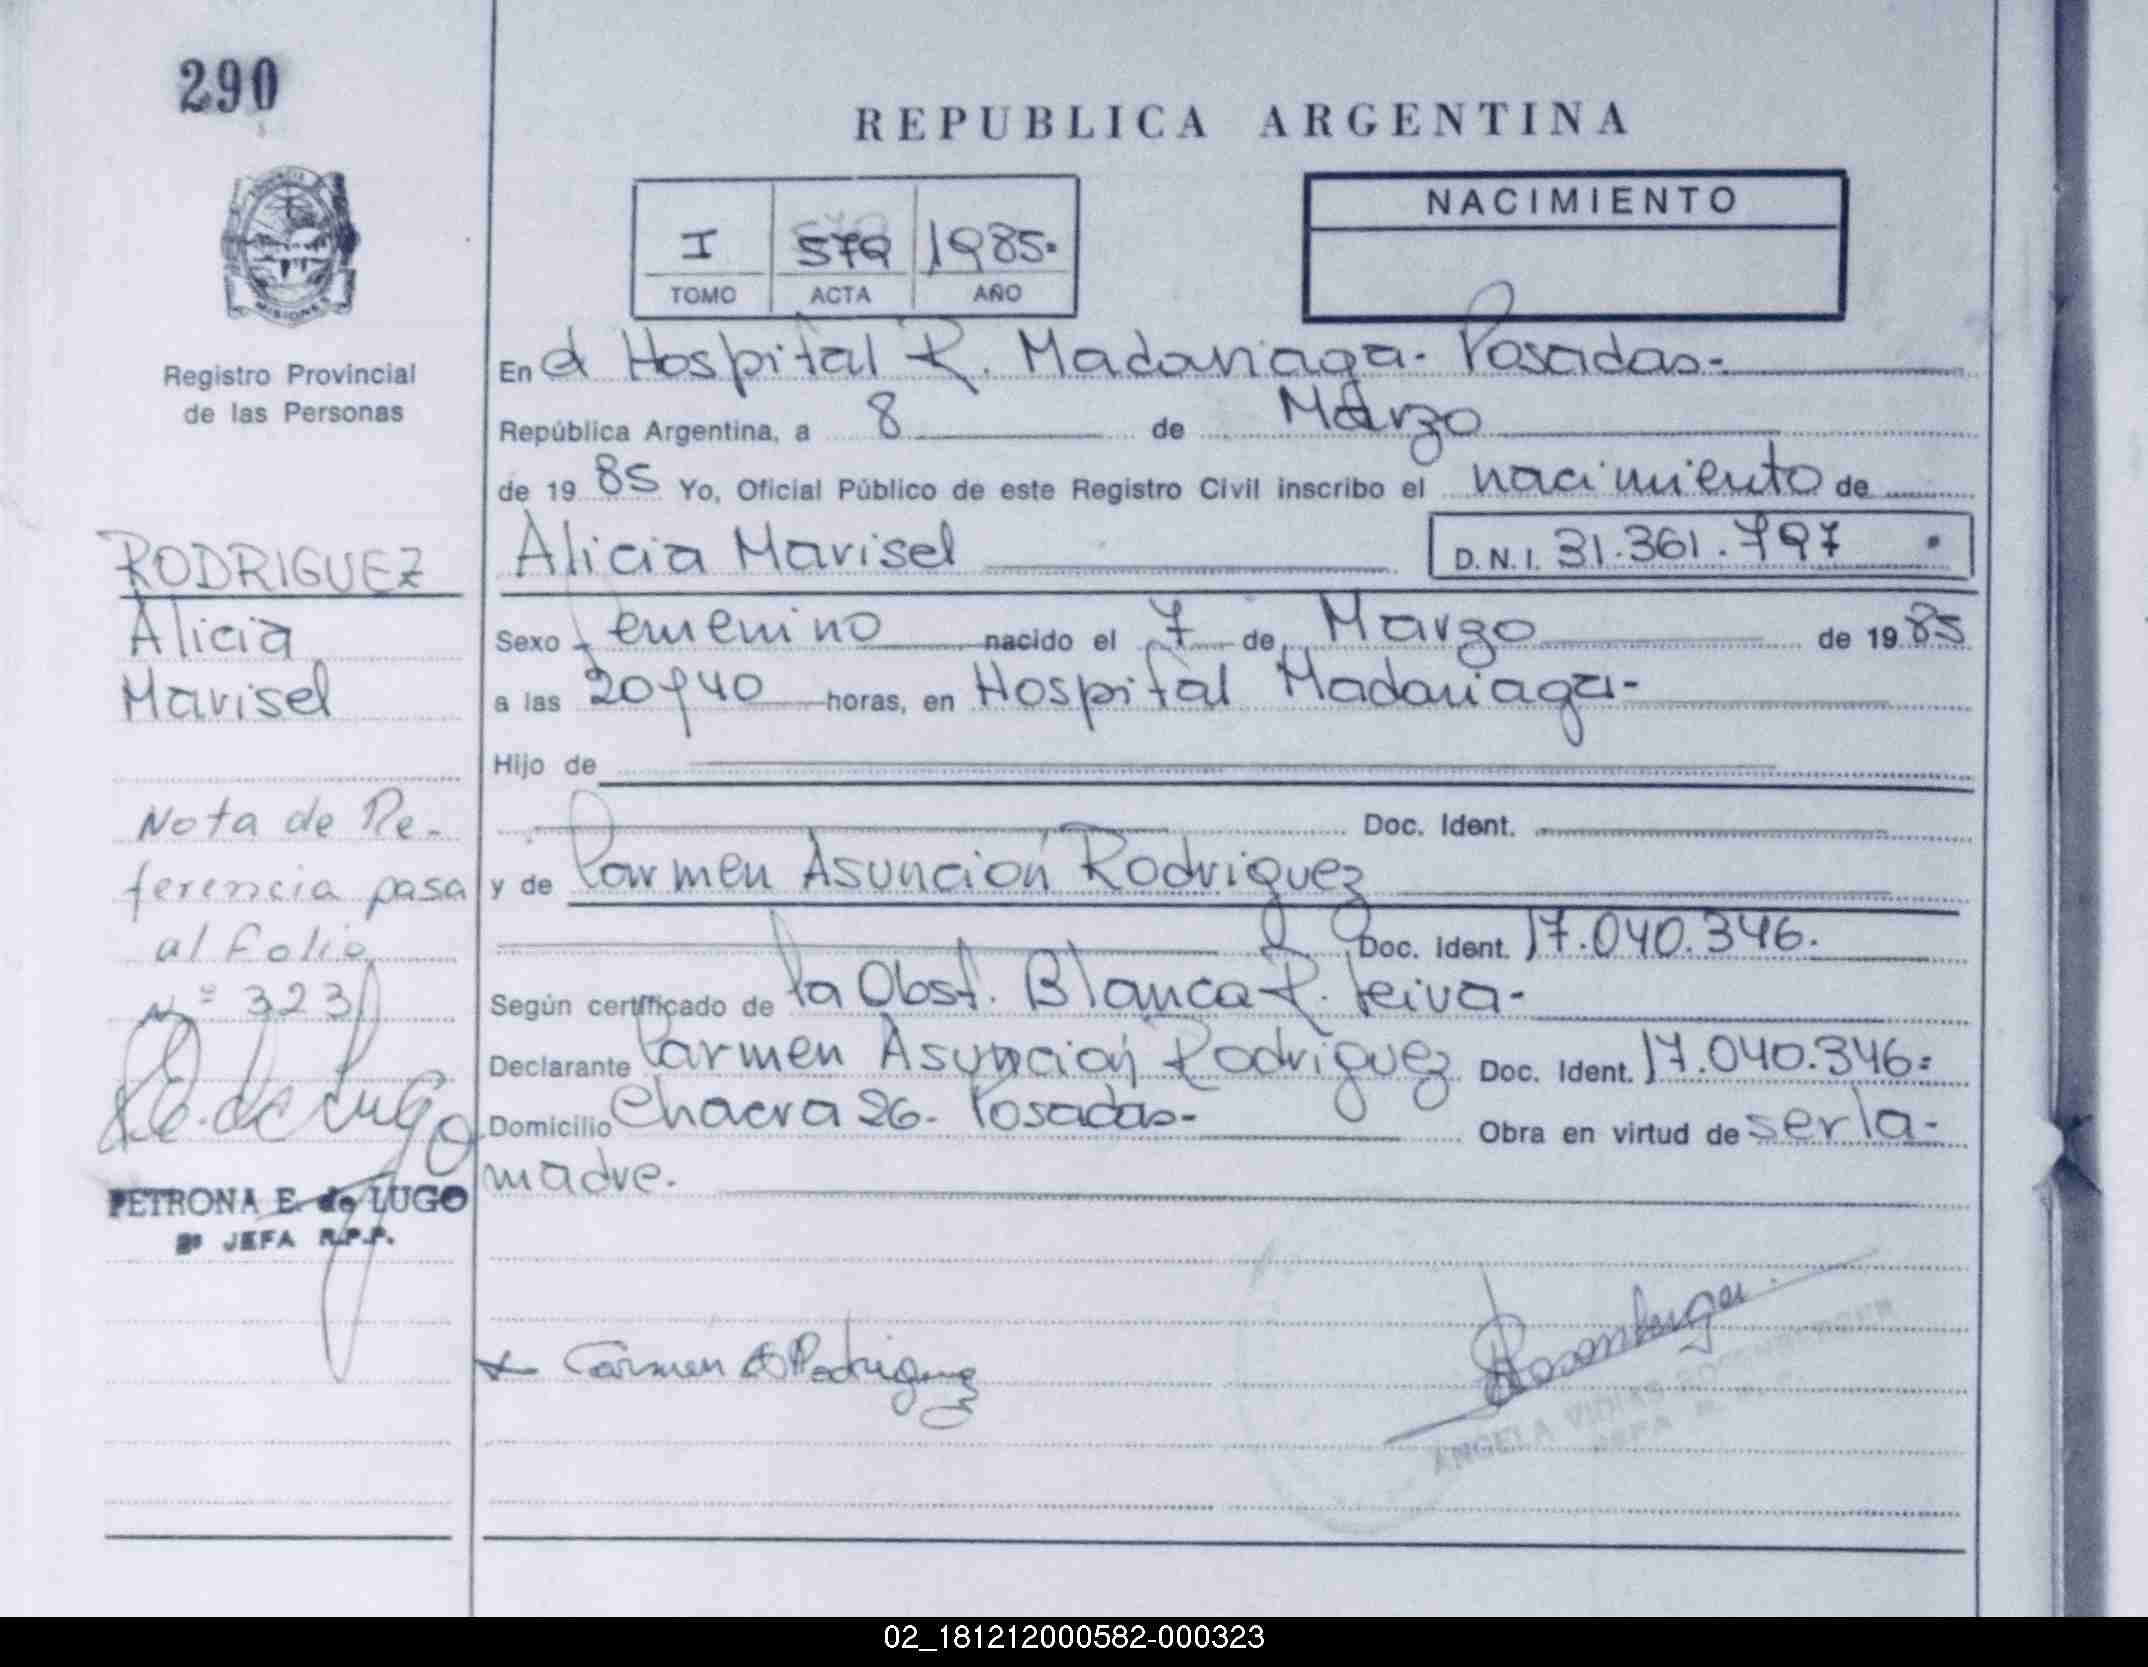 290
REPUBLICA ARGENTINA
I 579 1985.
TOMO ACTA AÑO
NACIMIENTO
MISIONES
Registro Provincial
de las Personas
RODRIGUEZ
Alicia
Marisel
Nota de Re-
ferencia pasa
al folio
Nº 323
PETRONA E. de LUGO
2º JEFA R.P.P.
En el Hospital R. Madariaga. Posadas-
República Argentina, a 8 de Marzo
de 1985 Yo, Oficial Público de este Registro Civil inscribo el nacimiento de
Alicia Marisel D.N.I. 31.361.797
Sexo femenino nacido el 7 de Marzo de 1985
a las 20y40 horas, en Hospital Madariaga-
Hijo de
Doc. Ident.
y de Carmen Asunción Rodriguez
Doc. Ident. 17.040.346.
Según certificado de la Obst. Blanca R. Leiva-
Declarante Carmen Asunción Rodriguez Doc. Ident. 17.040.346=
Domicilio Chacra 26- Posadas- Obra en virtud de ser la-
madre.
Carmen A Rodriguez
Rosenberger
ANGELA ROSENBERGER
JEFA
02_181212000582-000323